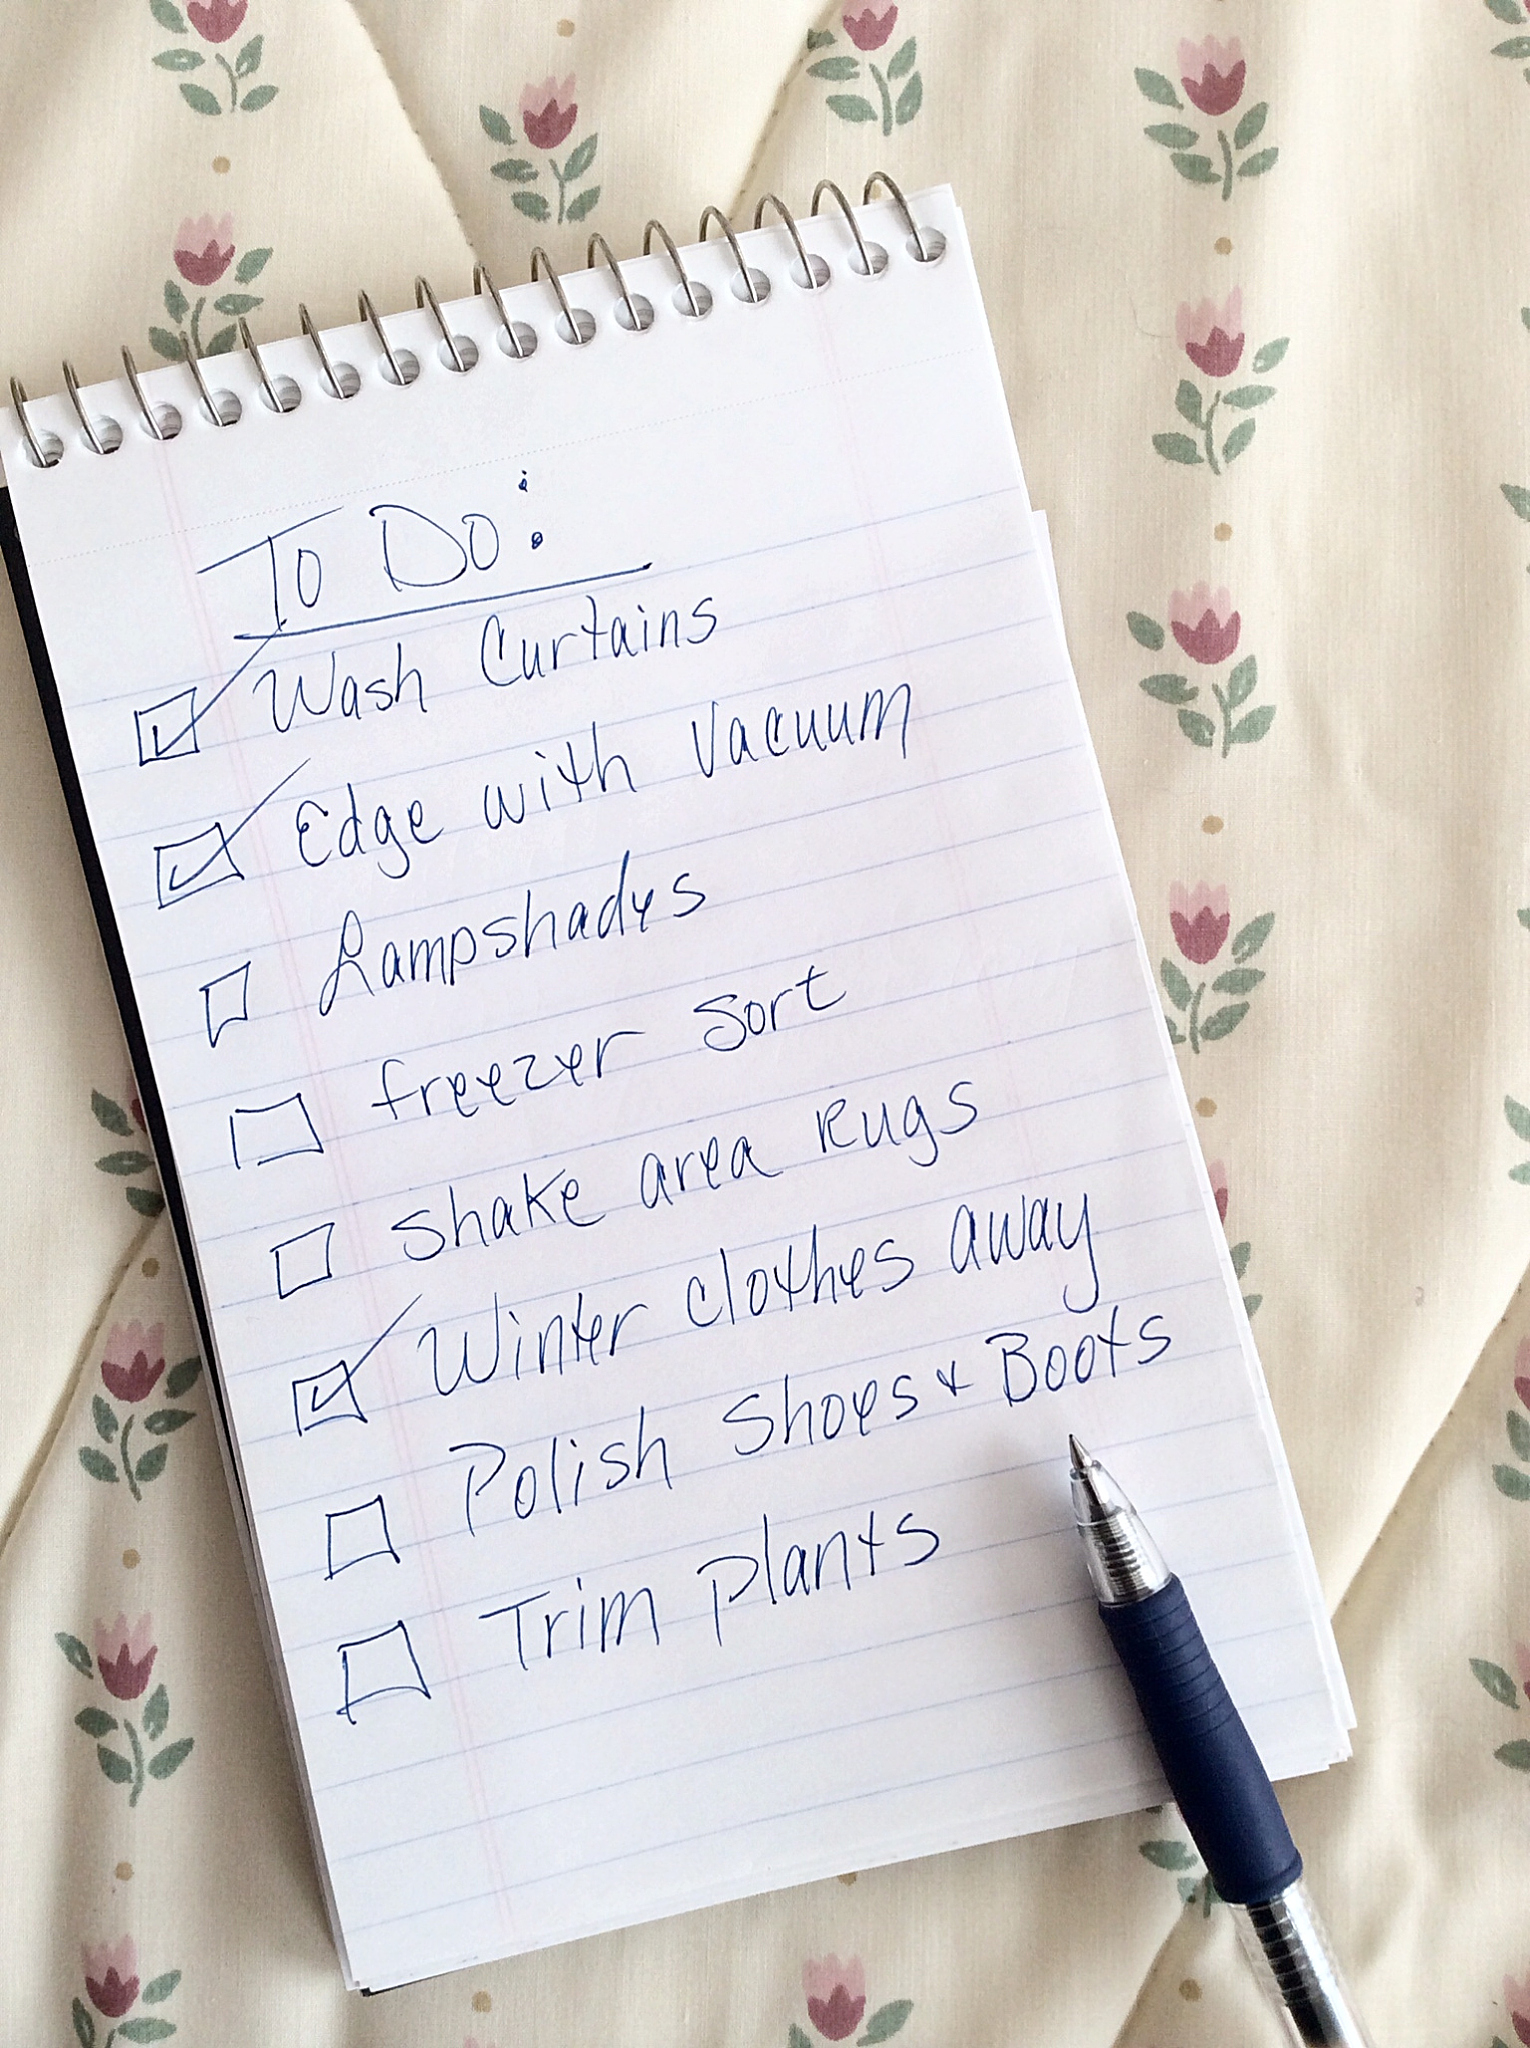 To Do:
Wash Curtains
Edge with Vacuum
Lampshades
freezer Sort
Shake area Rugs
Winter clothes away
Polish Shoes & Boots
Trim plants